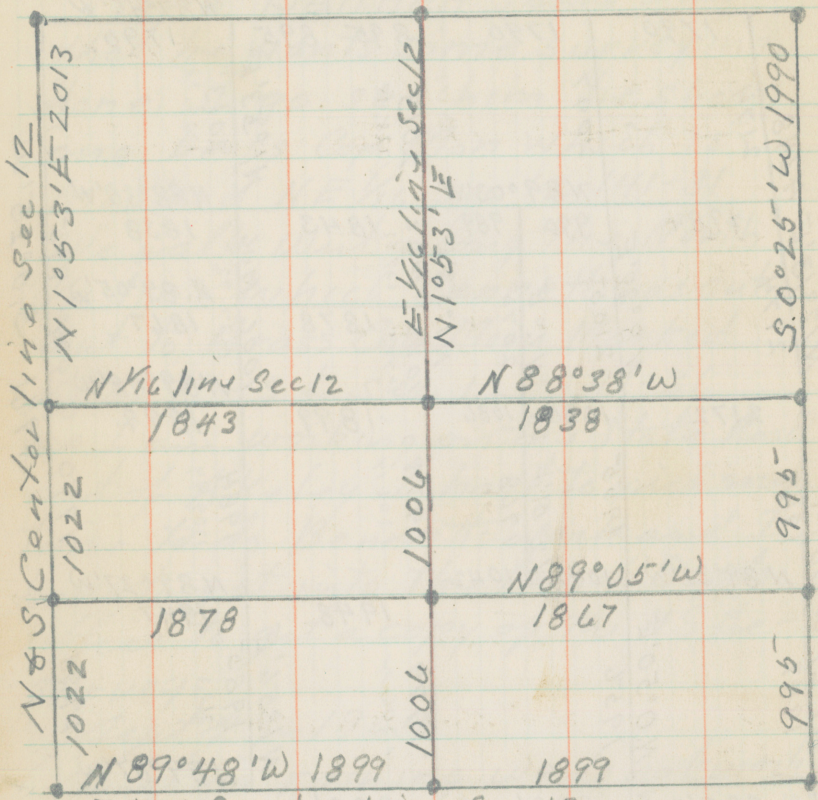 N & S Center line Sec 12
N 1°53' E 2013
E 1/16 line Sec 12
N 1°53' E
S. 0°25' W 1990
N 1/16 line Sec 12
N 88°38' W
1843
1838
1022
1006
995
N 89°05' W
1878
1867
1022
1006
995
N 89°48' W 1899
1899